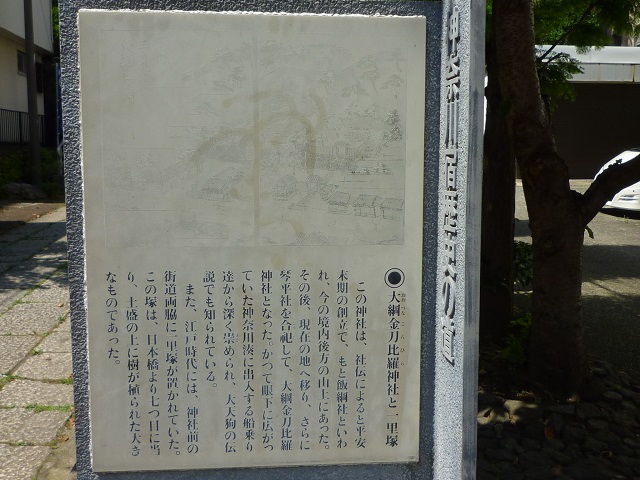 神奈川宿歴史の道
大綱金刀比羅神社と一里塚
この神社は、社伝によると平安
末期の創立で、もと飯綱社といわ
れ、今の境内後方の山上にあった。
その後、現在の地へ移り、さらに
琴平社を合祀して、大綱金刀比羅
神社となった。かつて眼下に広がっ
ていた神奈川湊に出入する船乗り
達から深く崇められ、大天狗の伝
説でも知られている。
また、江戸時代には、神社前の
街道両脇に一里塚が置かれていた。
この塚は、日本橋より七つ目に当
り、土盛の上に樹が植られた大き
なものであった。